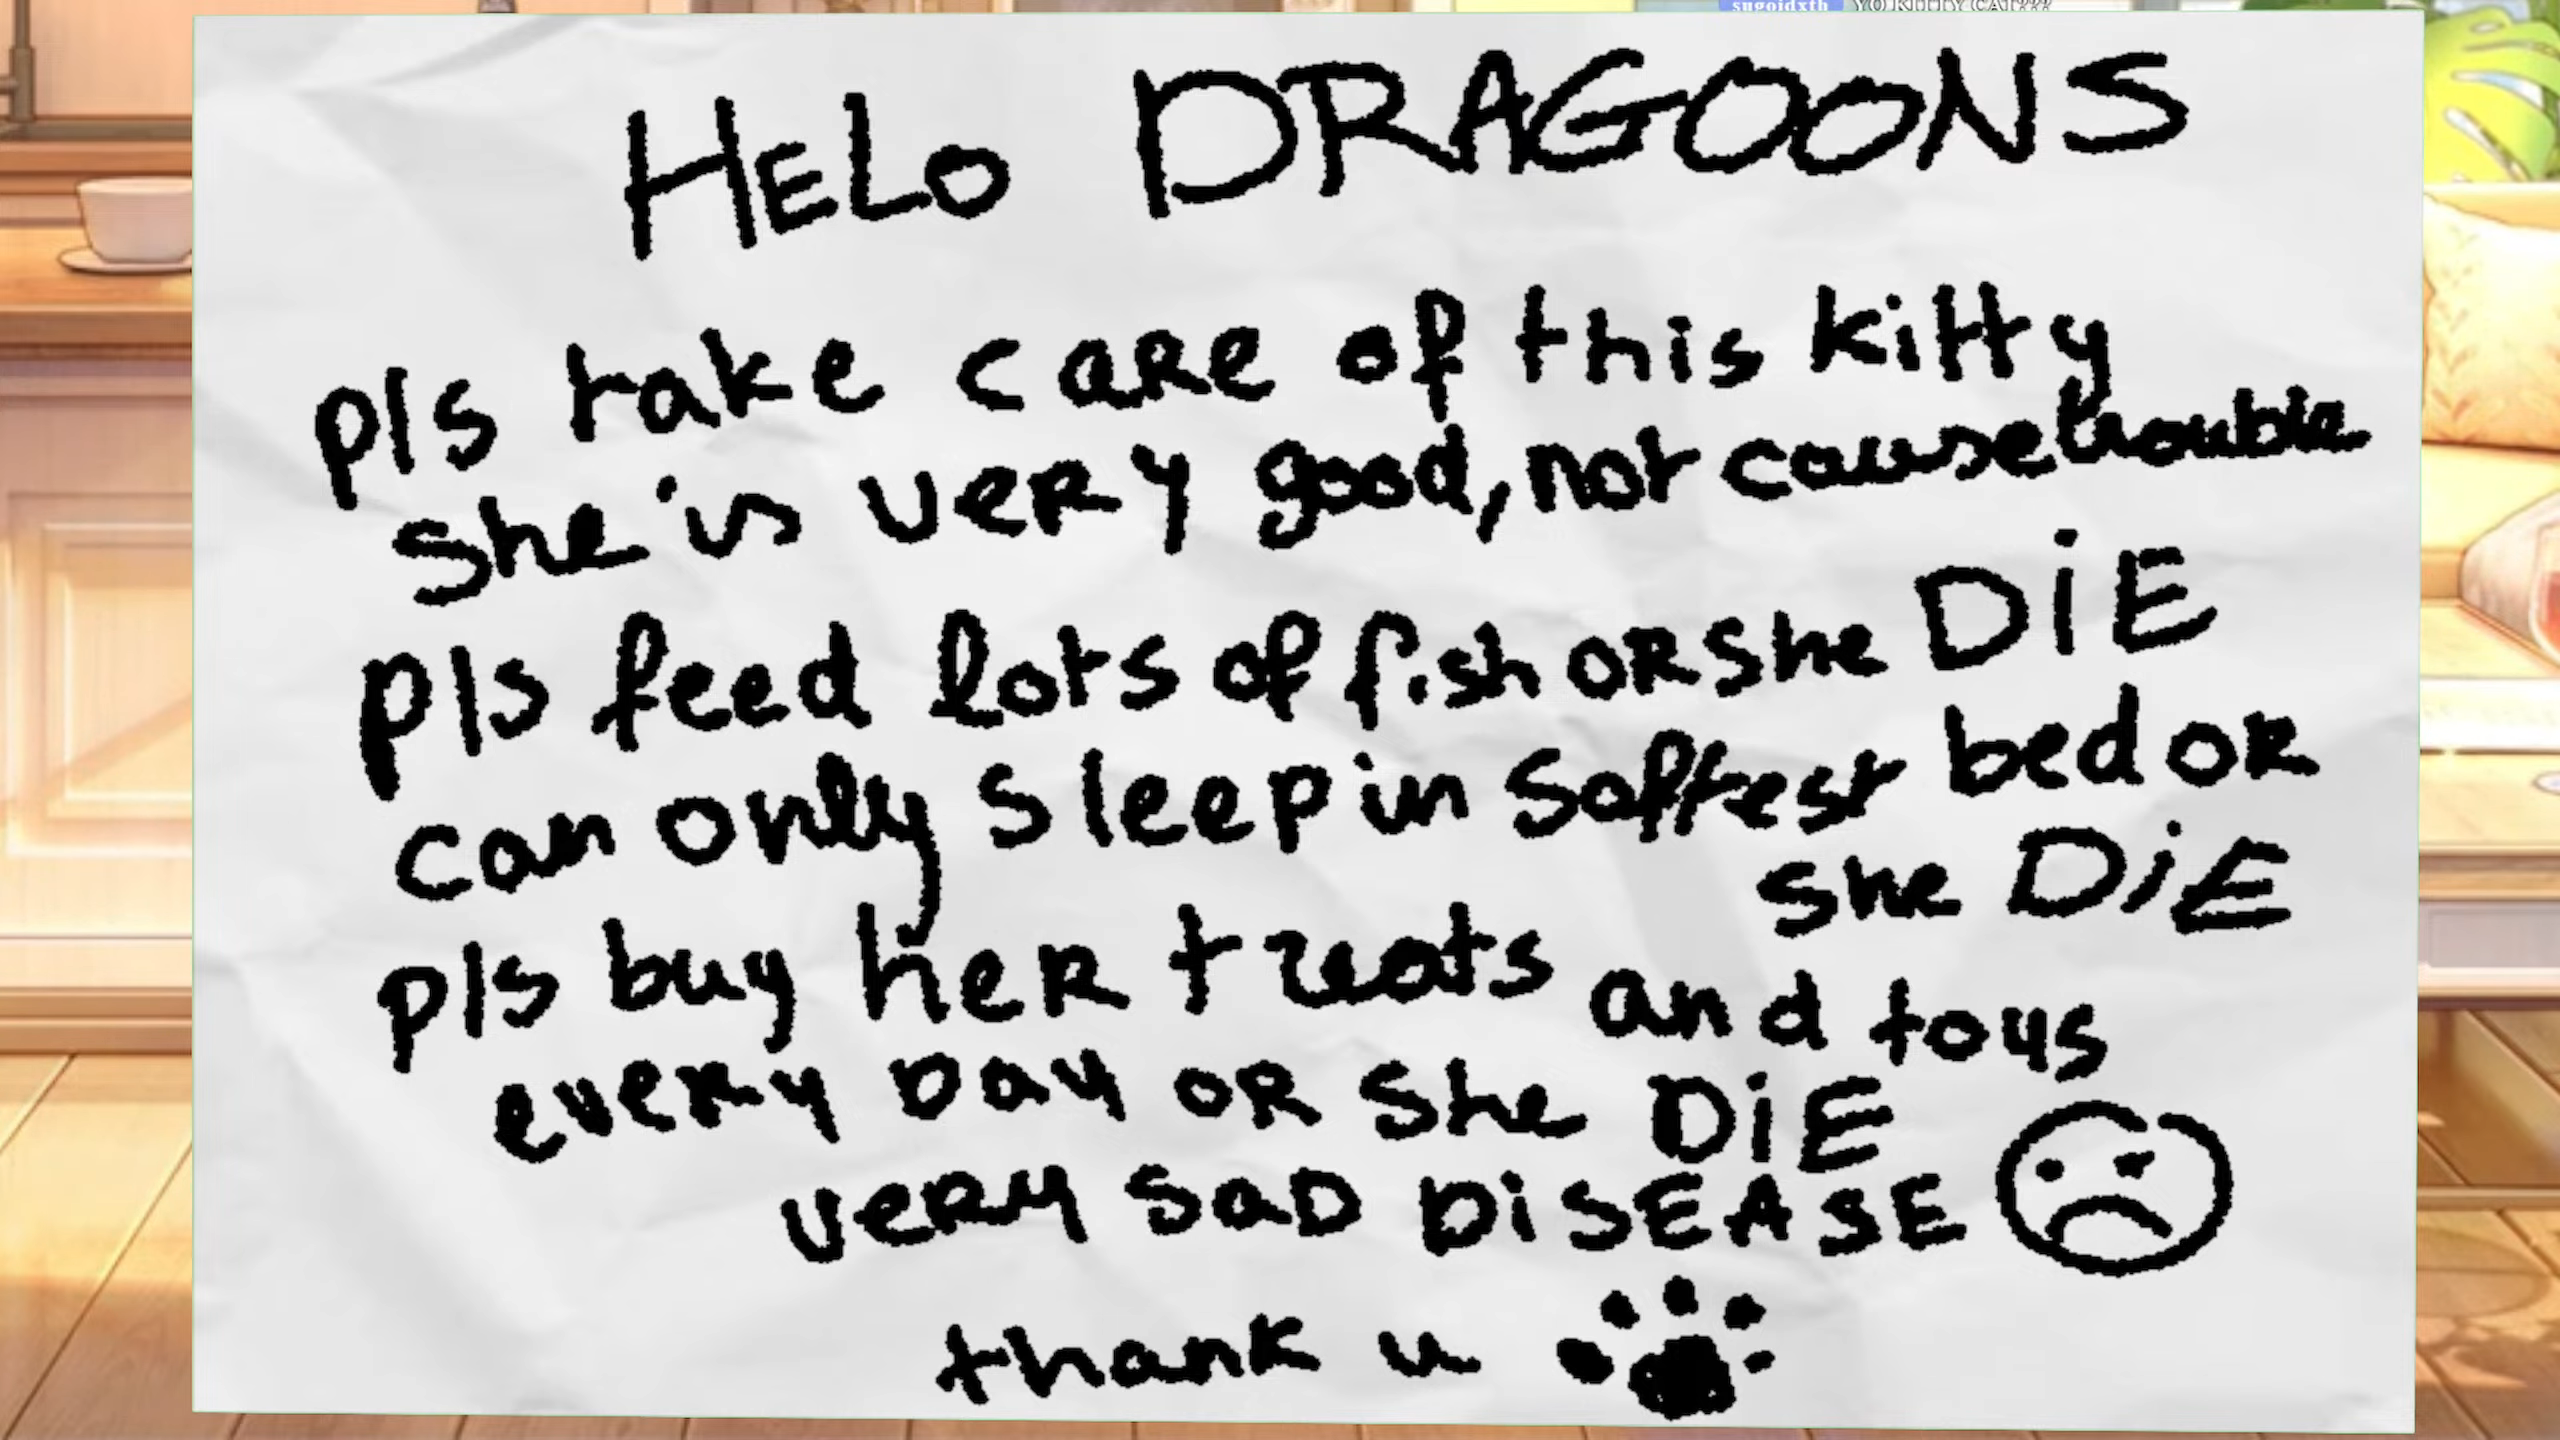 sugoidxth YO KITTY CAT???
HELO DRAGOONS
pls take care of this kitty
she is very good, not cause trouble
pls feed lots of fish or she DiE
can only sleep in softest bed or
she DiE
pls buy her treats and toys
every day or she DiE
very sad DiSEASE
thank u